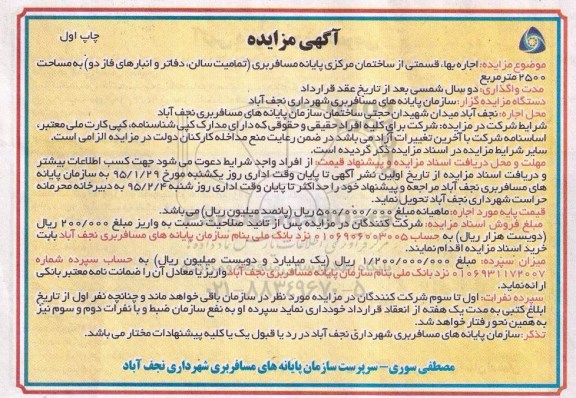 آگهی مزایده
چاپ اول
موضوع مزایده: اجاره بها، قسمتی از ساختمان مرکزی پایانه مسافربری (تمامیت سالن، دفاتر و انبارهای فاز دو) به مساحت
۲۵۰۰ مترمربع
مدت واگذاری: دو سال شمسی بعد از تاریخ عقد قرارداد
دستگاه مزایده گزار: سازمان پایانه های مسافربری شهرداری نجف آباد
محل اجاره: نجف آباد میدان شهیدان حجتی ساختمان سازمان پایانه های مسافربری نجف آباد
شرایط شرکت در مزایده: شرکت برای کلیه افراد حقیقی و حقوقی که دارای مدارک کپی شناسنامه، کپی کارت ملی معتبر،
اساسنامه شرکت با آخرین تغییرات آزاد می باشد در ضمن رعایت منع مداخله کارکنان دولت در مزایده الزامی است.
سایر شرایط مزایده در اسناد مزایده ذکر گردیده است.
مهلت و محل دریافت اسناد مزایده و پیشنهاد قیمت: از افراد واجد شرایط دعوت می شود جهت کسب اطلاعات بیشتر
و دریافت اسناد مزایده از تاریخ اولین نشر آگهی تا پایان وقت اداری روز یکشنبه مورخ ۹۵/۱/۲۹ به سازمان پایانه
های مسافربری نجف آباد مراجعه و پیشنهاد خود را حداکثر تا پایان وقت اداری روز شنبه ۹۵/۲/۴ به دبیرخانه محرمانه
حراست شهرداری نجف آباد تحویل نماید.
قیمت پایه مورد اجاره: ماهیانه مبلغ ۵۰۰/۰۰۰/۰۰۰ ریال (پانصد میلیون ریال) می باشد.
مبلغ فروش اسناد مزایده: شرکت کنندگان در مزایده پس از تائید صلاحیت نسبت به واریز مبلغ ۲۰۰/۰۰۰ ریال
(دویست هزار ریال) به حساب ۰۱۰۶۹۰۶۰۰۳۰۰۵ نزد بانک ملی بنام سازمان پایانه های مسافربری نجف آباد بابت
خرید اسناد مزایده اقدام نمایند.
میزان سپرده: مبلغ ۱/۲۰۰/۰۰۰/۰۰۰ ریال (یک میلیارد و دویست میلیون ریال) به حساب سپرده شماره
۰۱۰۶۹۳۱۱۷۲۰۰۷ نزد بانک ملی بنام سازمان پایانه مسافربری نجف آباد واریز یا معادل آن را ضمانت نامه معتبر بانکی
ارائه نماید.
سپرده نفرات: اول تا سوم شرکت کنندگان در مزایده مورد نظر در سازمان باقی خواهد ماند و چنانچه نفر اول از تاریخ
ابلاغ کتبی به مدت یک هفته از انعقاد قرارداد خودداری نماید سپرده او به نفع سازمان ضبط و با نفرات دوم و سوم نیز
به همین نحو رفتار خواهد شد.
تذکر: سازمان پایانه های مسافربری شهرداری نجف آباد در رد یا قبول یک یا کلیه پیشنهادات مختار می باشد.
مصطفی سوری - سرپرست سازمان پایانه های مسافربری شهرداری نجف آباد